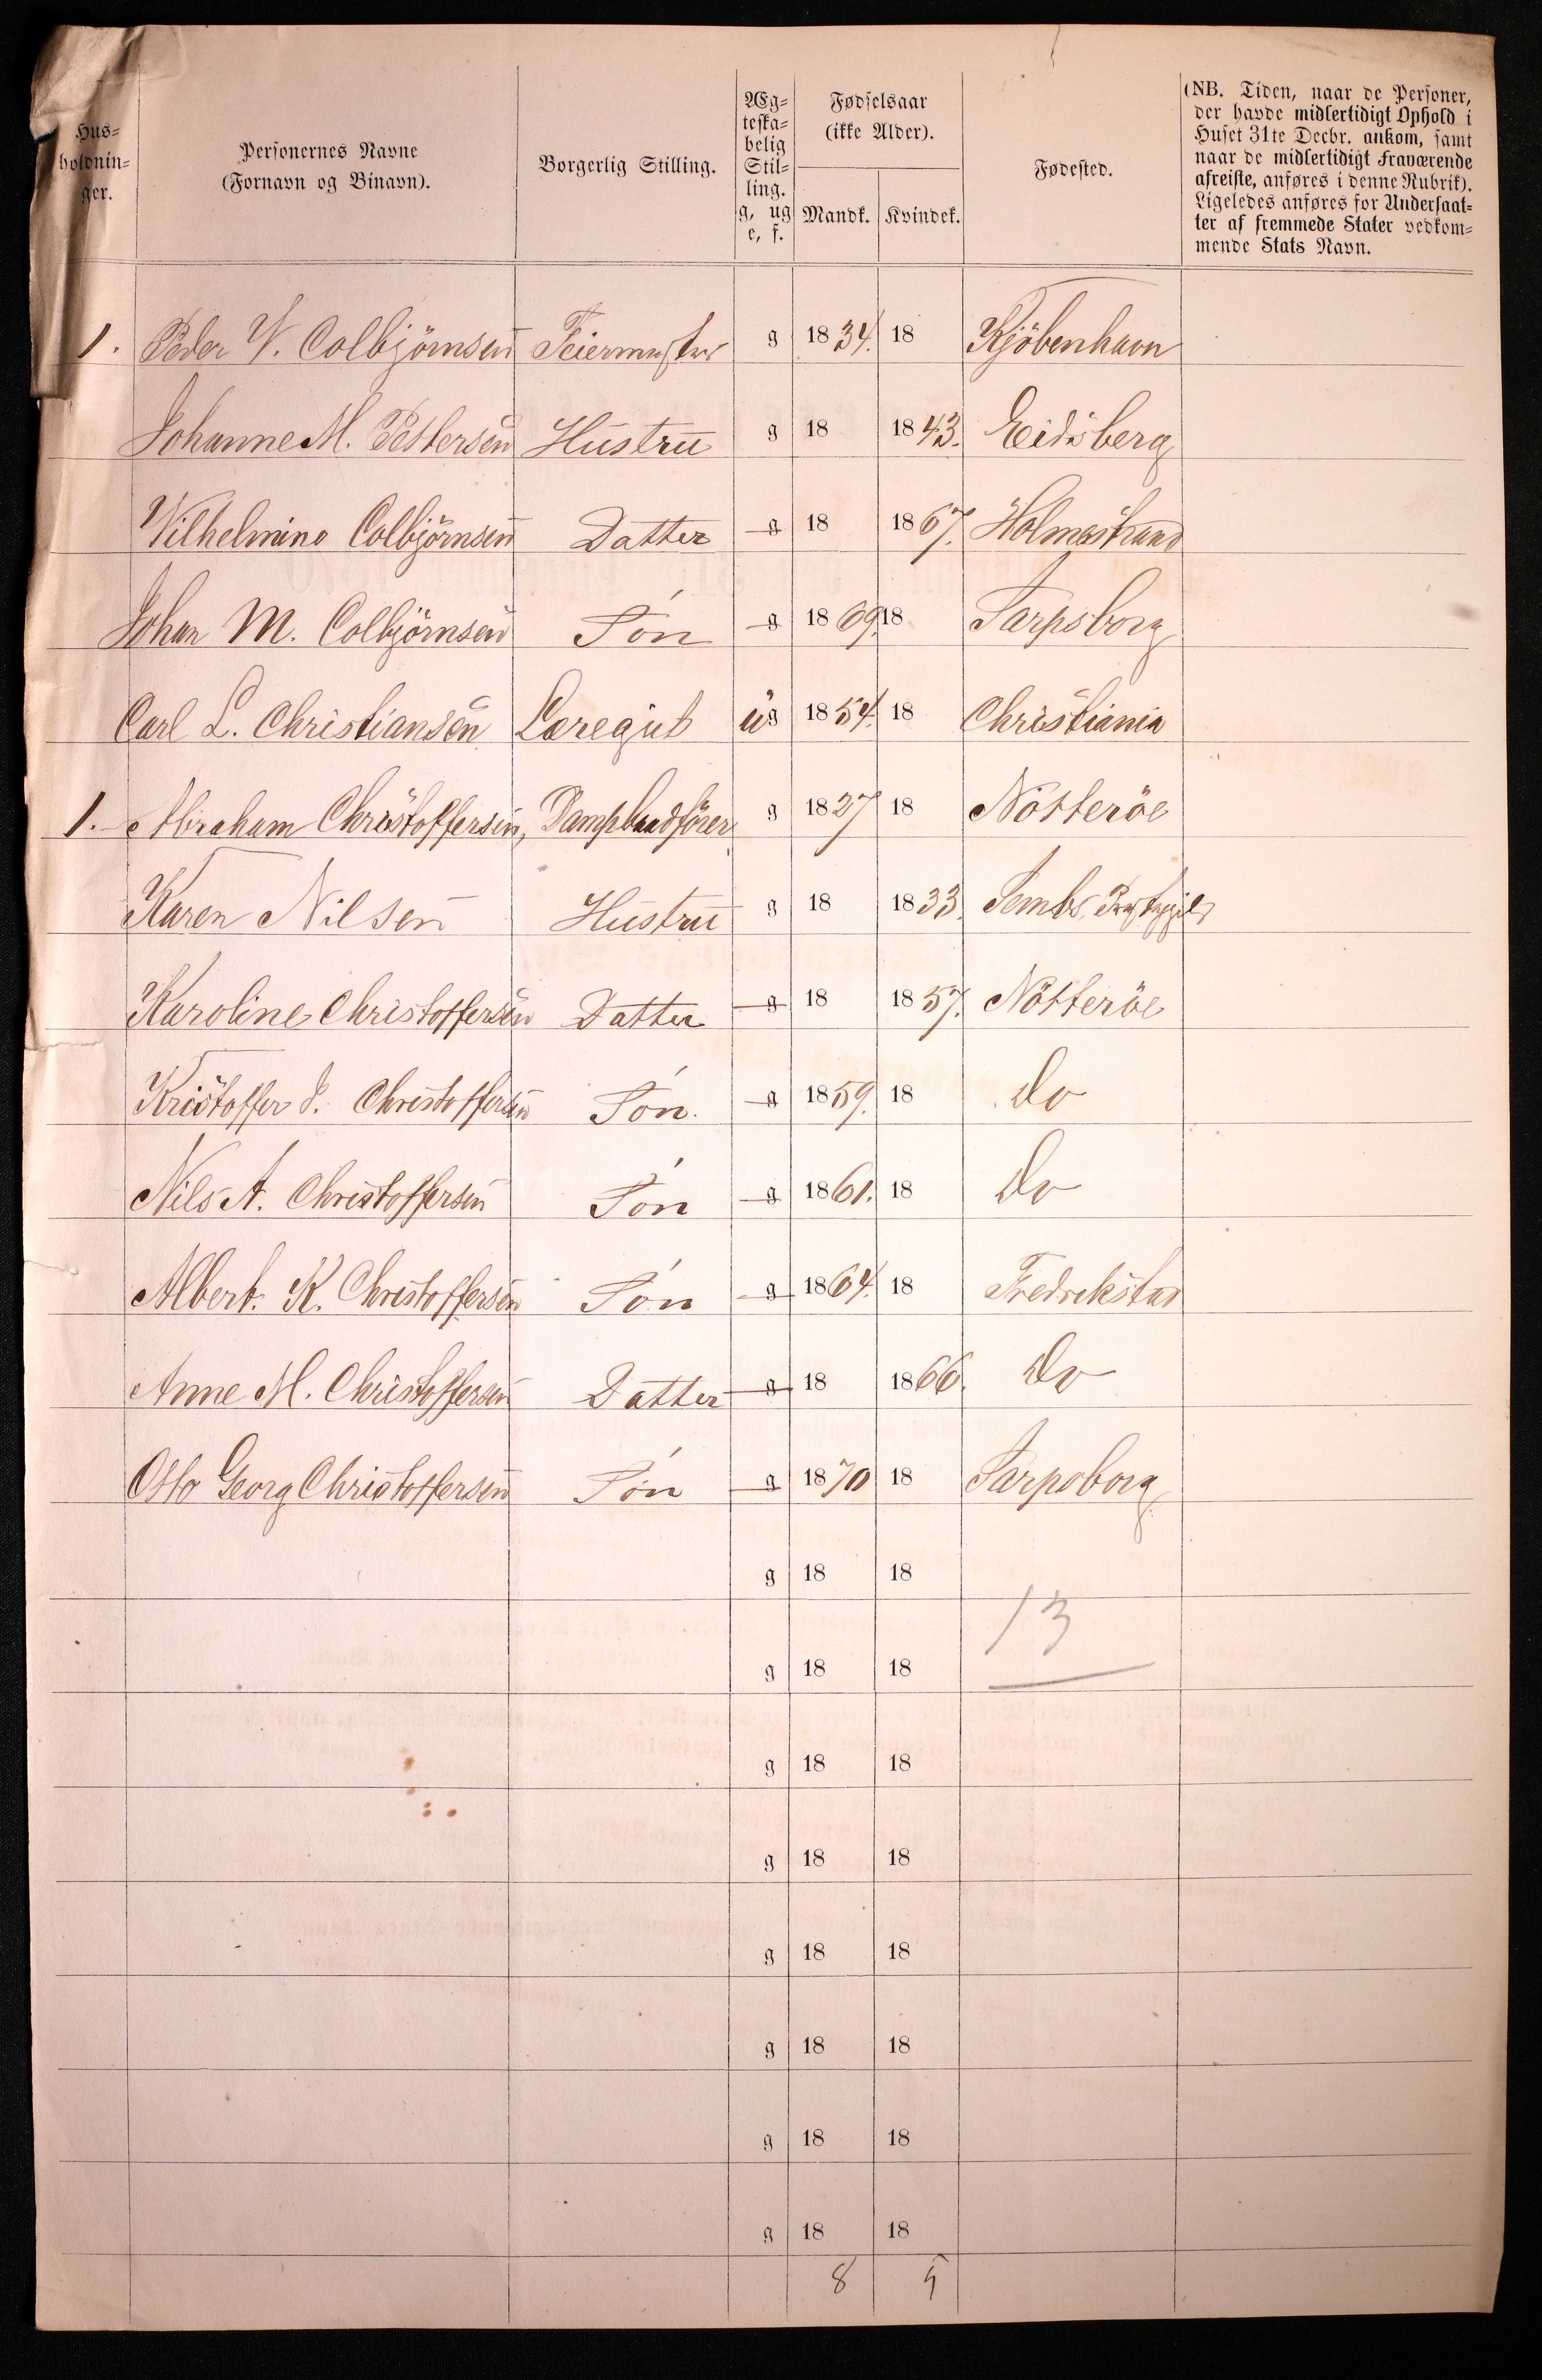 Hus-
holdnin-
ger.
Personernes Navne
(Fornavn og Binavn).
Borgerlig Stilling.
Æg-
teska-
belig
Stil-
ling.
g, ug
e, f.
Fødselsaar
(ikke Alder).
Mandk. Kvindek.
Fødested.
(NB. Tiden, naar de Personer,
der havde midlertidigt Ophold i
Huset 31te Decbr. ankom, samt
naar de midlertidigt Fraværende
afreiste, anføres i denne Rubrik).
Ligeledes anføres for Undersaat-
ter af fremmede Stater vedkom-
mende Stats Navn.
1. Peder W. Colbjörnsen Feiermester g 1834. 18 Kjöbenhavn
Johanne M. Pettersen Hustru g 18 1843. Eidsberg
Wilhelmine Colbjörnsen Datter g 18 1867. Holmestrand
Johan M. Colbjörnsen Sön g 1869. 18 Sarpsborg
Carl L. Christiansen Læregut ug 1854. 18 Christiania
1. Abraham Christoffersen, Dampbaadförer g 1827 18 Nötteröe
Karen Nilsen Hustru g 18 1833. Sembs Præstegjeld
Karoline Christoffersen Datter g 18 1857. Nötteröe
Kristoffer J. Christoffersen Sön. g 1859. 18 do
Nils A. Christoffersen Sön g 1861. 18 do
Albert. K. Christoffersen Sön g 1864. 18 Fredrekstad
Anne M. Christoffersen Datter g 18 1866. do
Otto Georg Christoffersen Sön g 1870 18 Sarpsborg
g 18 18
13
g 18 18
g 18 18
g 18 18
g 18 18
g 18 18
g 18 18
g 18 18
8 5